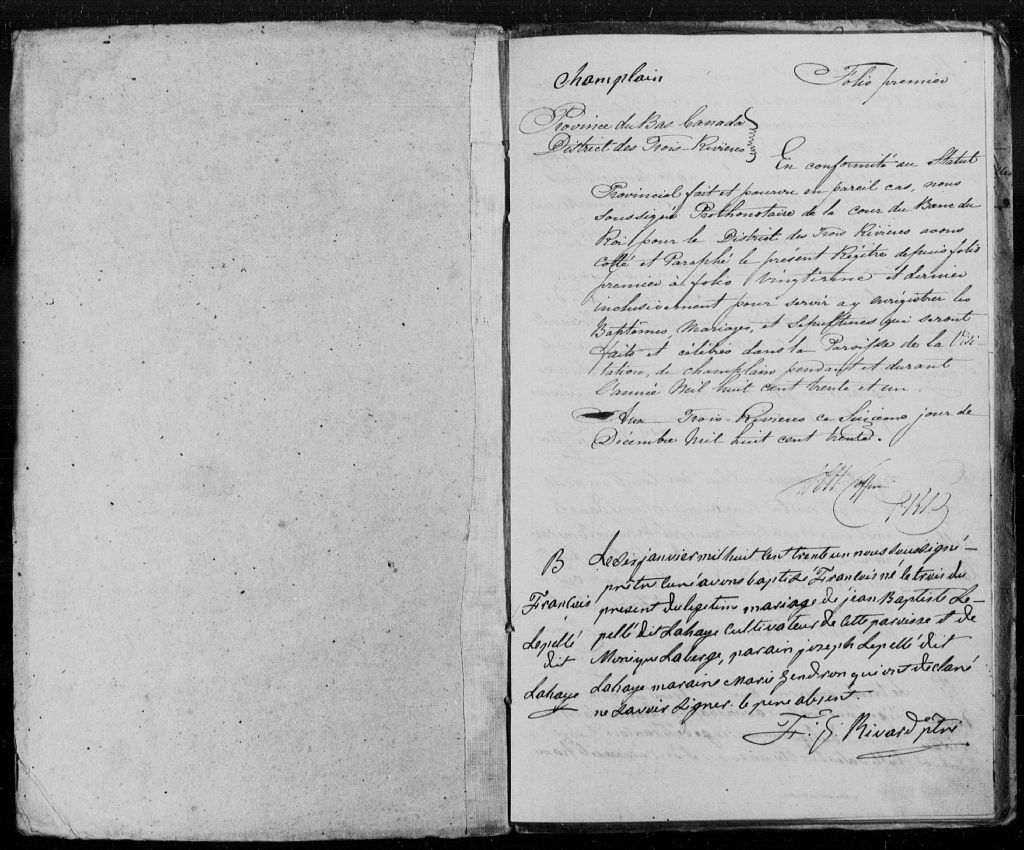 Champlain
Folio premier
Province du Bas Canada
District des Trois-Rivieres
En conformité au Statut
Provincial fait et pourvu en pareil cas, nous
Soussigné Prothonotaire de la cour du Banc du
Roi pour le District des Trois Rivieres avons
cotté et Paraphé le présent Régître depuis folio
premier à folio vingtieme et dernier
inclusivement pour servir a y enrégistrer les
Baptêmes Mariages, et Sepultures qui seront
faits et célébrés dans la Paroisse de la Visi-
tation, de champlain pendant et durant
l'année Mil huit cent trente et un.
Aux Trois-Rivieres ce Sixieme jour de
Décembre Mil huit cent trente.
Coffin
B
François
Lepellé
dit
Lahaye
Le Six janvier mil huit cent trente un nous soussigné
prêtre curé avons baptisé François né le trois du
present du legitime mariage de jean Baptiste Le-
pellé dit Lahaye Cultivateur de cette paroisse et de
Monique Laberge, parain joseph Lepellé dit
Lahaye maraine Marie Gendron qui ont declaré
ne savoir signer. le pere absent.
F. S. Rivard ptre